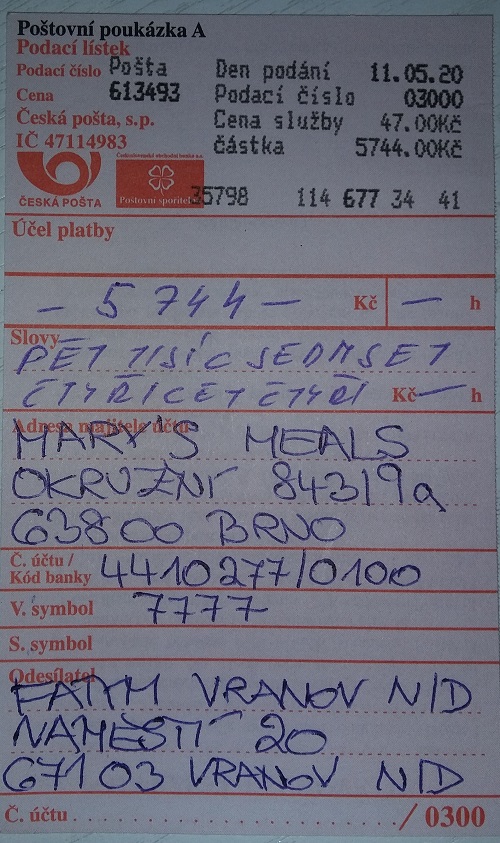 Poštovní poukázka A
Podací lístek
Podací číslo Pošta Den podání 11.05.20
Cena 613493 Podací číslo 03000
Česká pošta, s.p. Cena služby 47.00Kč
IČ 47114983 částka 5744.00Kč
Československá obchodní banka a.s.
ČESKÁ POŠTA Poštovní spořitelna 35798 114 677 34 41
Účel platby
– 5 744 – Kč — h
Slovy
PĚT TISÍC SEDMSET
ČTYŘICET ČTYŘI Kč — h
Adresa majitele účtu
MARY'S MEALS
OKRUŽNÍ 843/9a
63800 BRNO
Č. účtu /
Kód banky 4410277/0100
V. symbol 7777
S. symbol
Odesílatel
FATYM VRANOV N/D
NÁMĚSTÍ 20
67103 VRANOV N/D
Č. účtu . . . . . . . . . . . . . . . . . . . . . / 0300